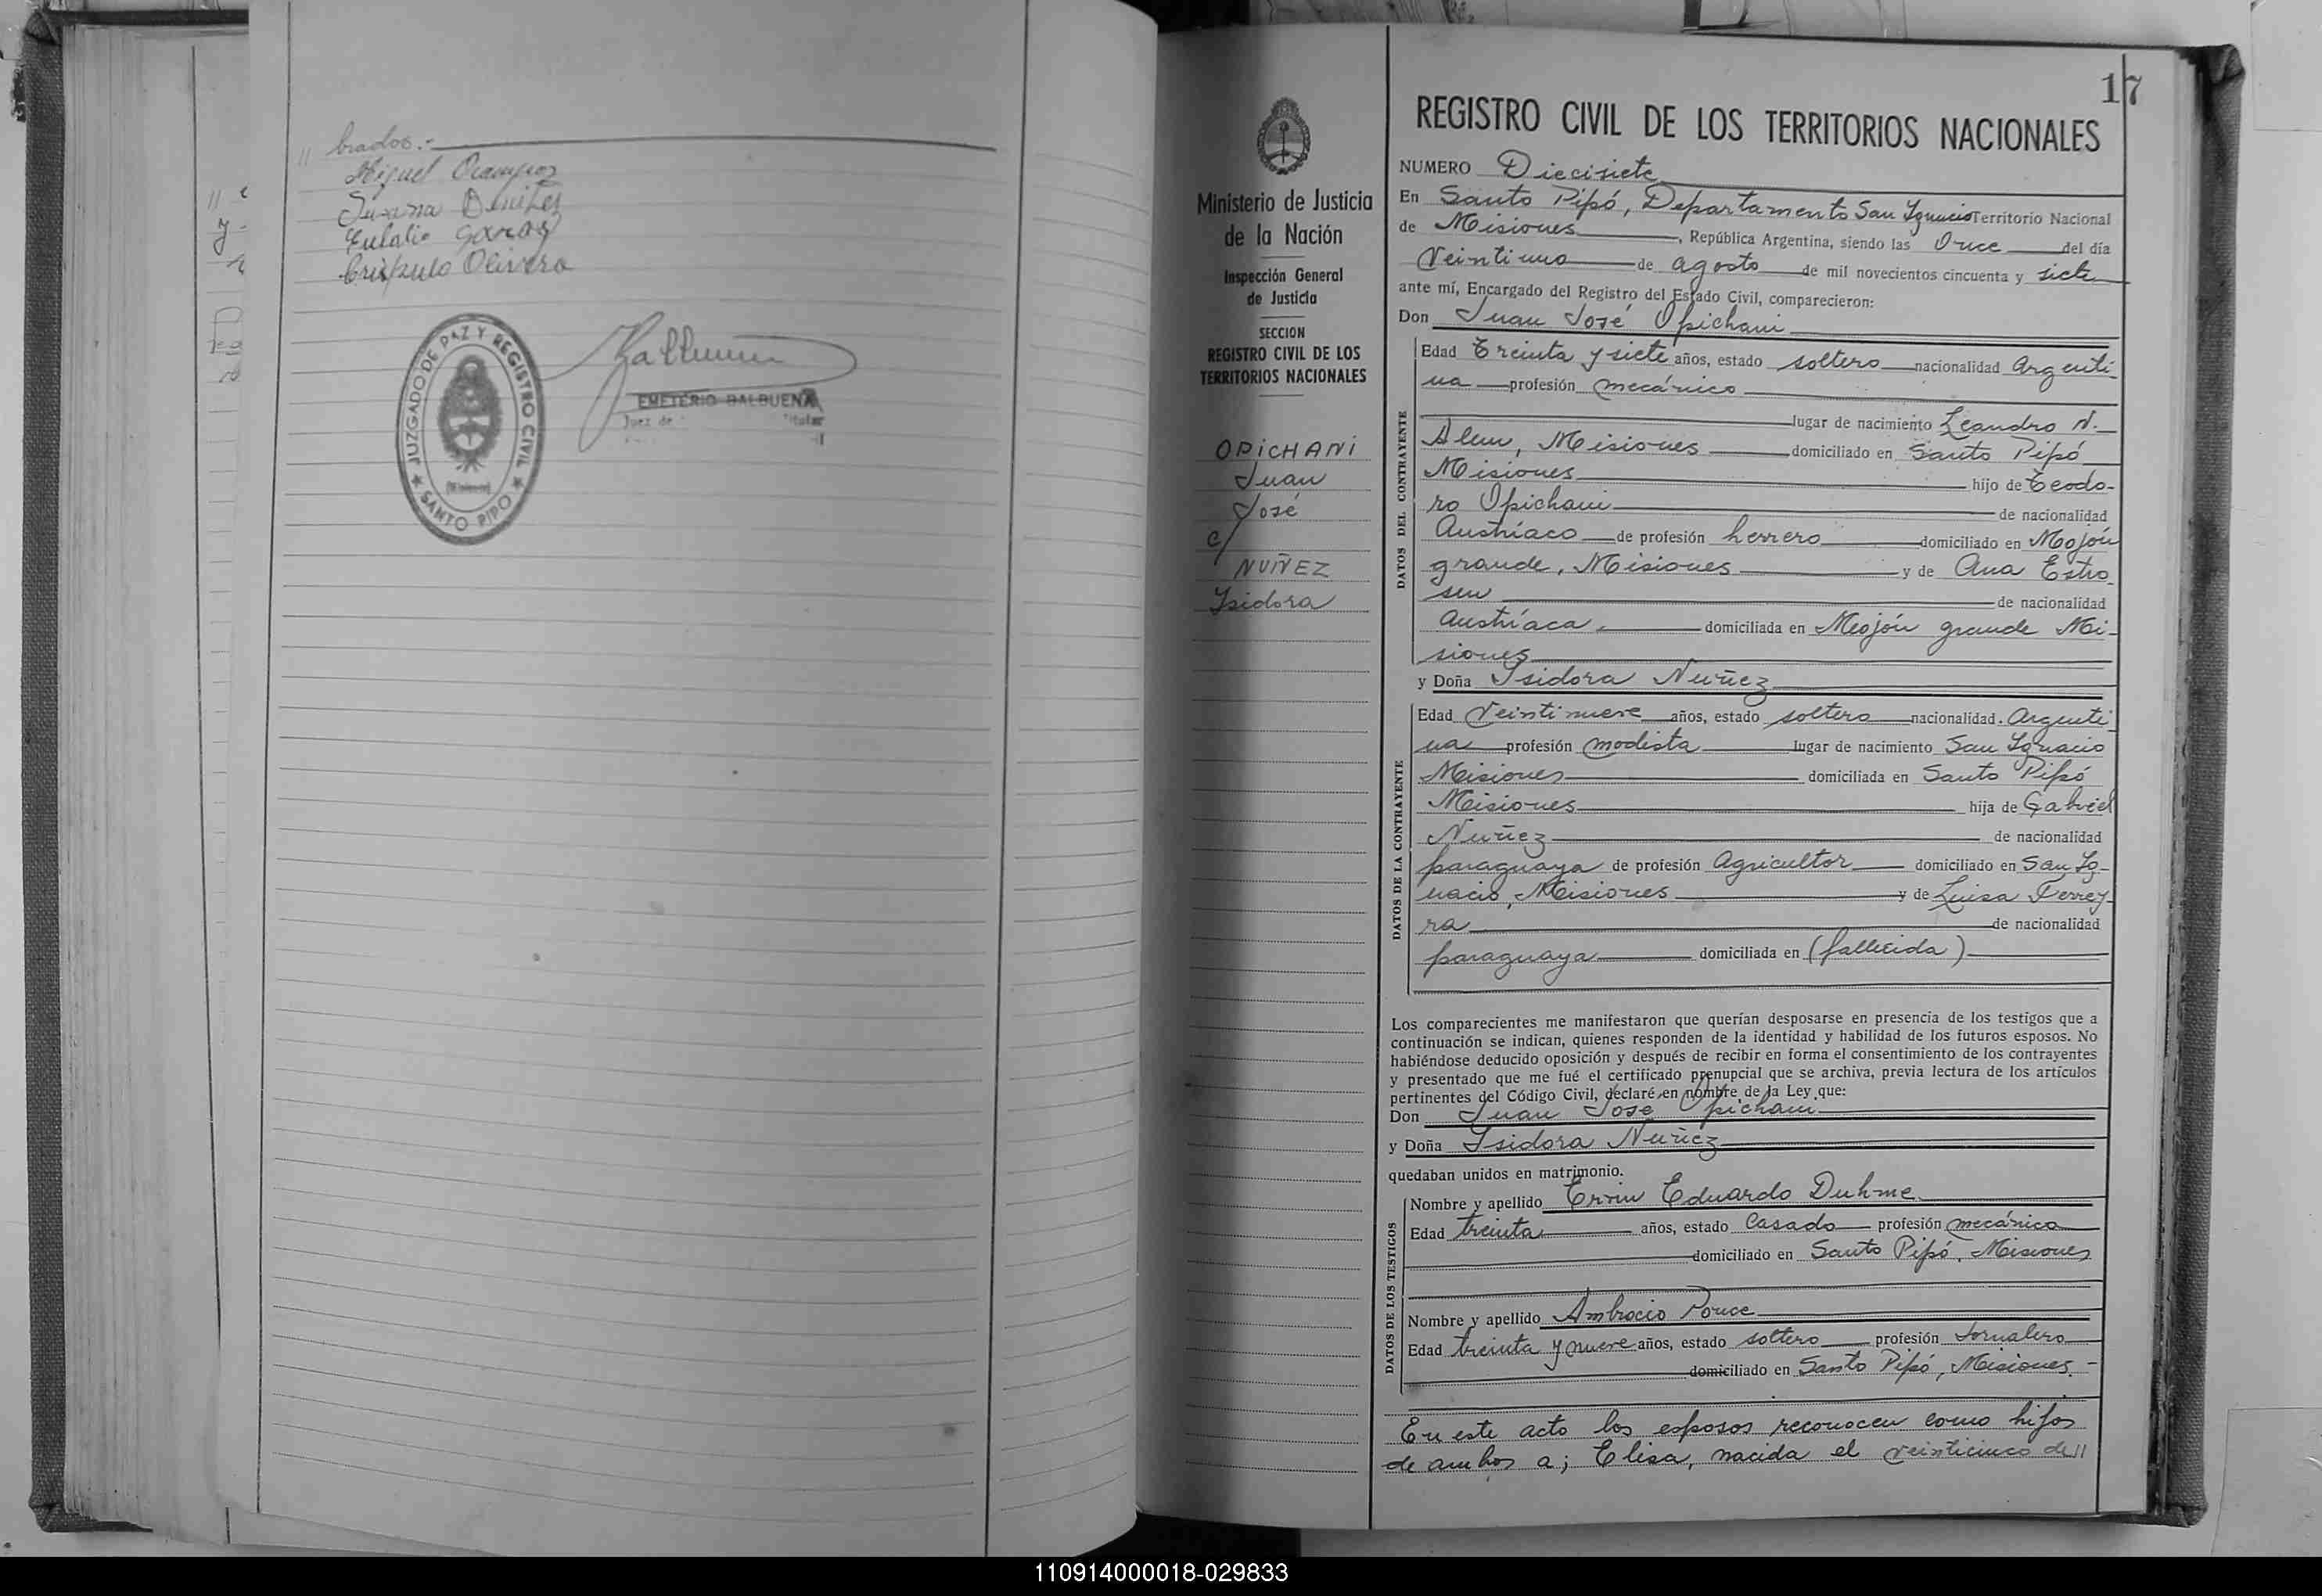 // brados.-
Miguel Ocampos
Susana Benitez
Eulalio Garcay
Crispulo Olivera
JUZGADO DE PAZ Y REGISTRO CIVIL
★ SANTO PIPO ★
EMETERIO BALBUENA
Juez de Titular
Ministerio de Justicia
de la Nación
Inspección General
de Justicia
SECCION
REGISTRO CIVIL DE LOS
TERRITORIOS NACIONALES
OPiCHANi
Juan
José
c/
NUÑEZ
Ysidora
17
REGISTRO CIVIL DE LOS TERRITORIOS NACIONALES
NUMERO Diecisiete
En Santo Pipó, Departamento San Ignacio Territorio Nacional
de Misiones, República Argentina, siendo las Once del día
Veintiuno de agosto de mil novecientos cincuenta y siete
ante mí, Encargado del Registro del Estado Civil, comparecieron:
Don Juan José Opichani
DATOS DEL CONTRAYENTE
Edad Treinta y siete años, estado soltero nacionalidad Argenti-
na profesión mecánico
lugar de nacimiento Leandro N.
Alem, Misiones domiciliado en Santo Pipó
Misiones hijo de Teodo-
ro Opichani de nacionalidad
Austríaco de profesión herrero domiciliado en Mojón
grande, Misiones y de Ana Estro
sen de nacionalidad
Austríaca, domiciliada en Mojón grande Mi-
siones
y Doña Isidora Nuñez
DATOS DE LA CONTRAYENTE
Edad Veintinueve años, estado soltera nacionalidad. Argenti
na profesión modista lugar de nacimiento San Ignacio
Misiones domiciliada en Santo Pipó
Misiones hija de Gabriel
Nuñez de nacionalidad
paraguaya de profesión Agricultor domiciliado en San Ig-
nacio, Misiones y de Luisa Ferrey-
ra de nacionalidad
paraguaya domiciliada en (fallecida)
Los comparecientes me manifestaron que querían desposarse en presencia de los testigos que a
continuación se indican, quienes responden de la identidad y habilidad de los futuros esposos. No
habiéndose deducido oposición y después de recibir en forma el consentimiento de los contrayentes
y presentado que me fué el certificado prenupcial que se archiva, previa lectura de los artículos
pertinentes del Código Civil, declaré en nombre de la Ley que:
Don Juan Jose Opichani
y Doña Isidora Nuñez
quedaban unidos en matrimonio.
DATOS DE LOS TESTIGOS
Nombre y apellido Ervin Eduardo Duhme
Edad treinta años, estado Casado profesión mecánico
domiciliado en Santo Pipó, Misiones
Nombre y apellido Ambrocio Ponce
Edad treinta y nueve años, estado soltero profesión Jornalero
domiciliado en Santo Pipó, Misiones.-
En este acto los esposos reconocen como hijos
de ambos a; Elisa, nacida el veinticinco de //
110914000018-029833